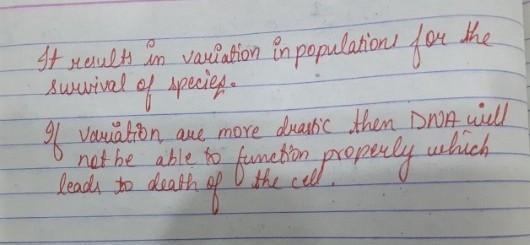 It results in variation in populations for the
survival of species.
If variation are more drastic then DNA will
not be able to function properly which
leads to death of the cell.